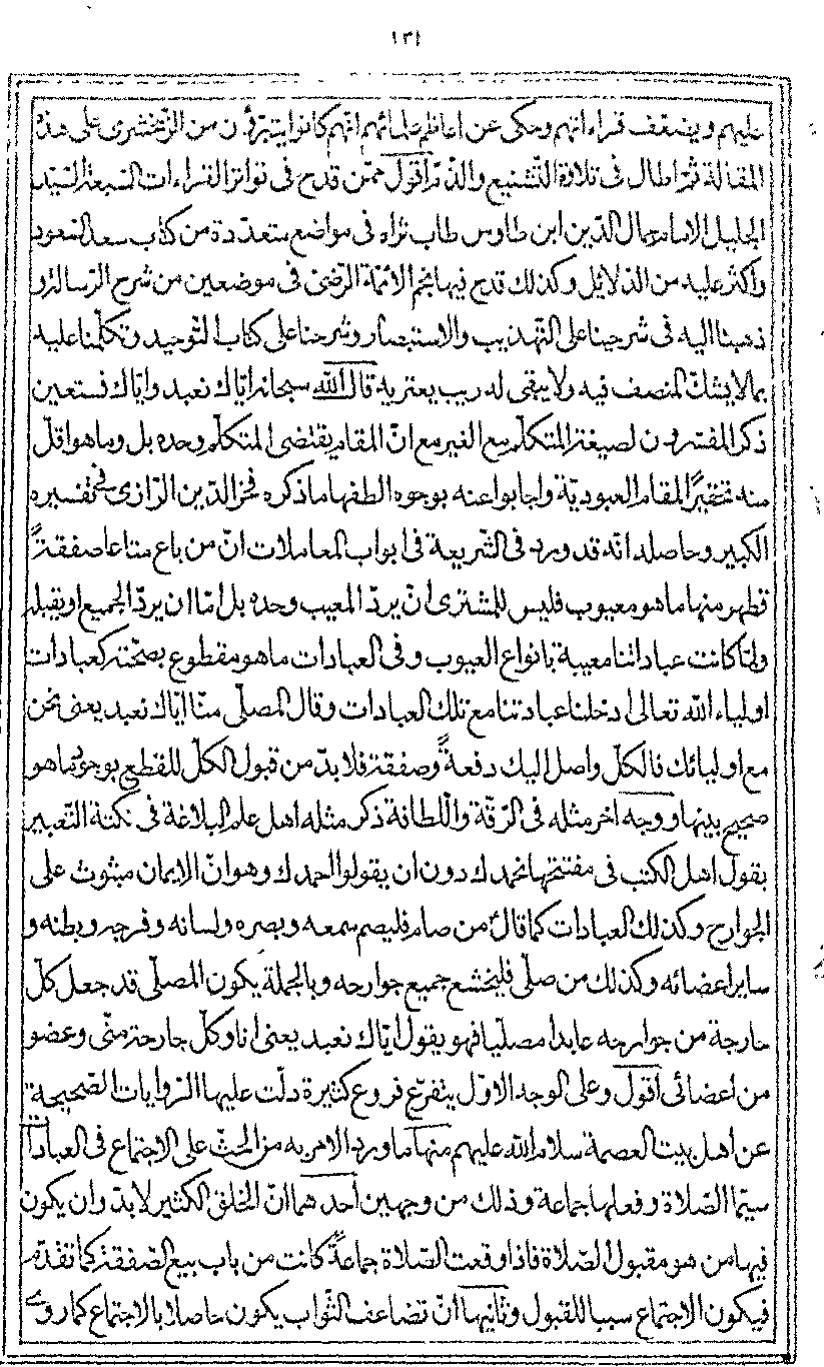 ١٣١
عليهم ويضعّف قراءاتهم وحكى عن اعاظم علمائهم انّهم كانوا يتبرّؤن من الزّمخشرى على هذه
المقالة ثمّ اطال فى تلاوة التّشنيع والذّم أقول ممّن قدح فى تواتر القراءات السّبعة السّيد
الجليل الامام جمال الدّين ابن طاوس طاب ثراه فى مواضع متعدّدة من كتاب سعد السّعود
واكثر عليه من الدّلائل وكذلك قدح فيها نجم الأئمّة الرّضىّ فى موضعين من شرح الرّسالة و
ذهبنا اليه فى شرحينا على التّهذيب والاستبصار وشرحنا على كتاب التّوحيد وتكلّمنا عليه
بما لا يشكّ المنصف فيه ولا يبقى له ريب يعتريه قال الله سبحانه ايّاك نعبد وايّاك نستعين
ذكر المفسّرون لصيغة المتكلّم مع الغير مع انّ المقام يقتضى المتكلّم وحده بل وما هو اقلّ
منه تحقيرًا لمقام العبوديّة واجابوا عنه بوجوه الطفها ما ذكره فخر الدّين الرّازى فى تفسيره
الكبير وحاصله انّه قد ورد فى الشّريعة فى ابواب المعاملات انّ من باع متاعا صفقةً
فظهر منها ما هو معيوب فليس للمشترى انّ يردّ المعيب وحده بل امّا ان يردّ الجميع او يقبله
ولمّا كانت عباداتنا معيبة بانواع العيوب وفى العبادات ما هو مقطوع بصحّته كعبادات
اولياء الله تعالى ادخلنا عبادتنا مع تلك العبادات وقال المصلّى منّا ايّاك نعبد يعنى نحن
مع اوليائك فالكلّ واصل اليك دفعةً وصفقة فلابدّ من قبول الكلّ للقطع بوجود ما هو
صحيح بينها ووجه اخر مثله فى الرّقّة واللّطافة ذكر مثله اهل علم البلاغة فى نكتة التّعبير
بقول اهل الكتب فى مفتتحها نحمدك دون ان يقولوا الحمد لك وهو انّ الايمان مبثوث على
الجوارح وكذلك العبادات كما قال من صام فليصم سمعه وبصره ولسانه وفرجه وبطنه و
ساير اعضائه وكذلك من صلّى فليخشع جميع جوارحه وبالجملة يكون المصلّى قد جعل كلّ
جارحة من جوارحه عابدا مصلّيا فهو يقول ايّاك نعبد يعنى انا وكلّ جارحة منّى وعضو
من اعضائى أقول وعلى الوجه الاوّل يتفرّع فروع كثيرة دلّت عليها الرّوايات الصّحيحة
عن اهل بيت العصمة سلام الله عليهم منها ما ورد الامر به من الحثّ على الاجتماع فى العبادات
سيّما الصّلاة وفعلها جماعة وذلك من وجهين أحدهما انّ الخلق الكثير لابدّ وان يكون
فيها من هو مقبول الصّلاة فاذا وقعت الصّلاة جماعةً كانت من باب بيع الصّفقة كما تقدّم
فيكون الاجتماع سببا للقبول وثانيها انّ تضاعف الثّواب يكون حاصلا بالاجتماع كما روى